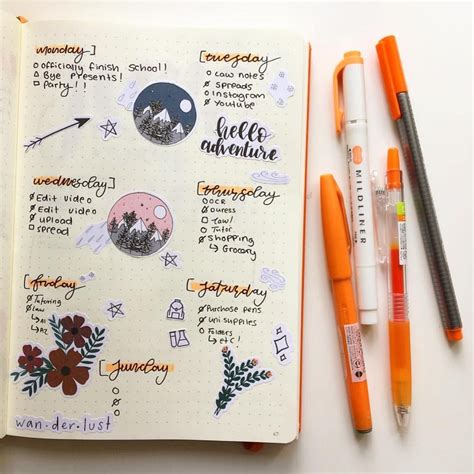 monday
officially finish school!!
Bye Presents!
party!!
tuesday
Law notes
spreads
Instagram
Youtube
hello
adventure
wednesday
Edit video
Edit video
upload
spread
thursday
OCR
Duress
Law!
Tutor
Shopping
Grocery
friday
Tutoring
Law
A1
A2
saturday
Purchase pens
uni supplies
Folders
etc!
sunday
wan·der·lust
MILDLINER